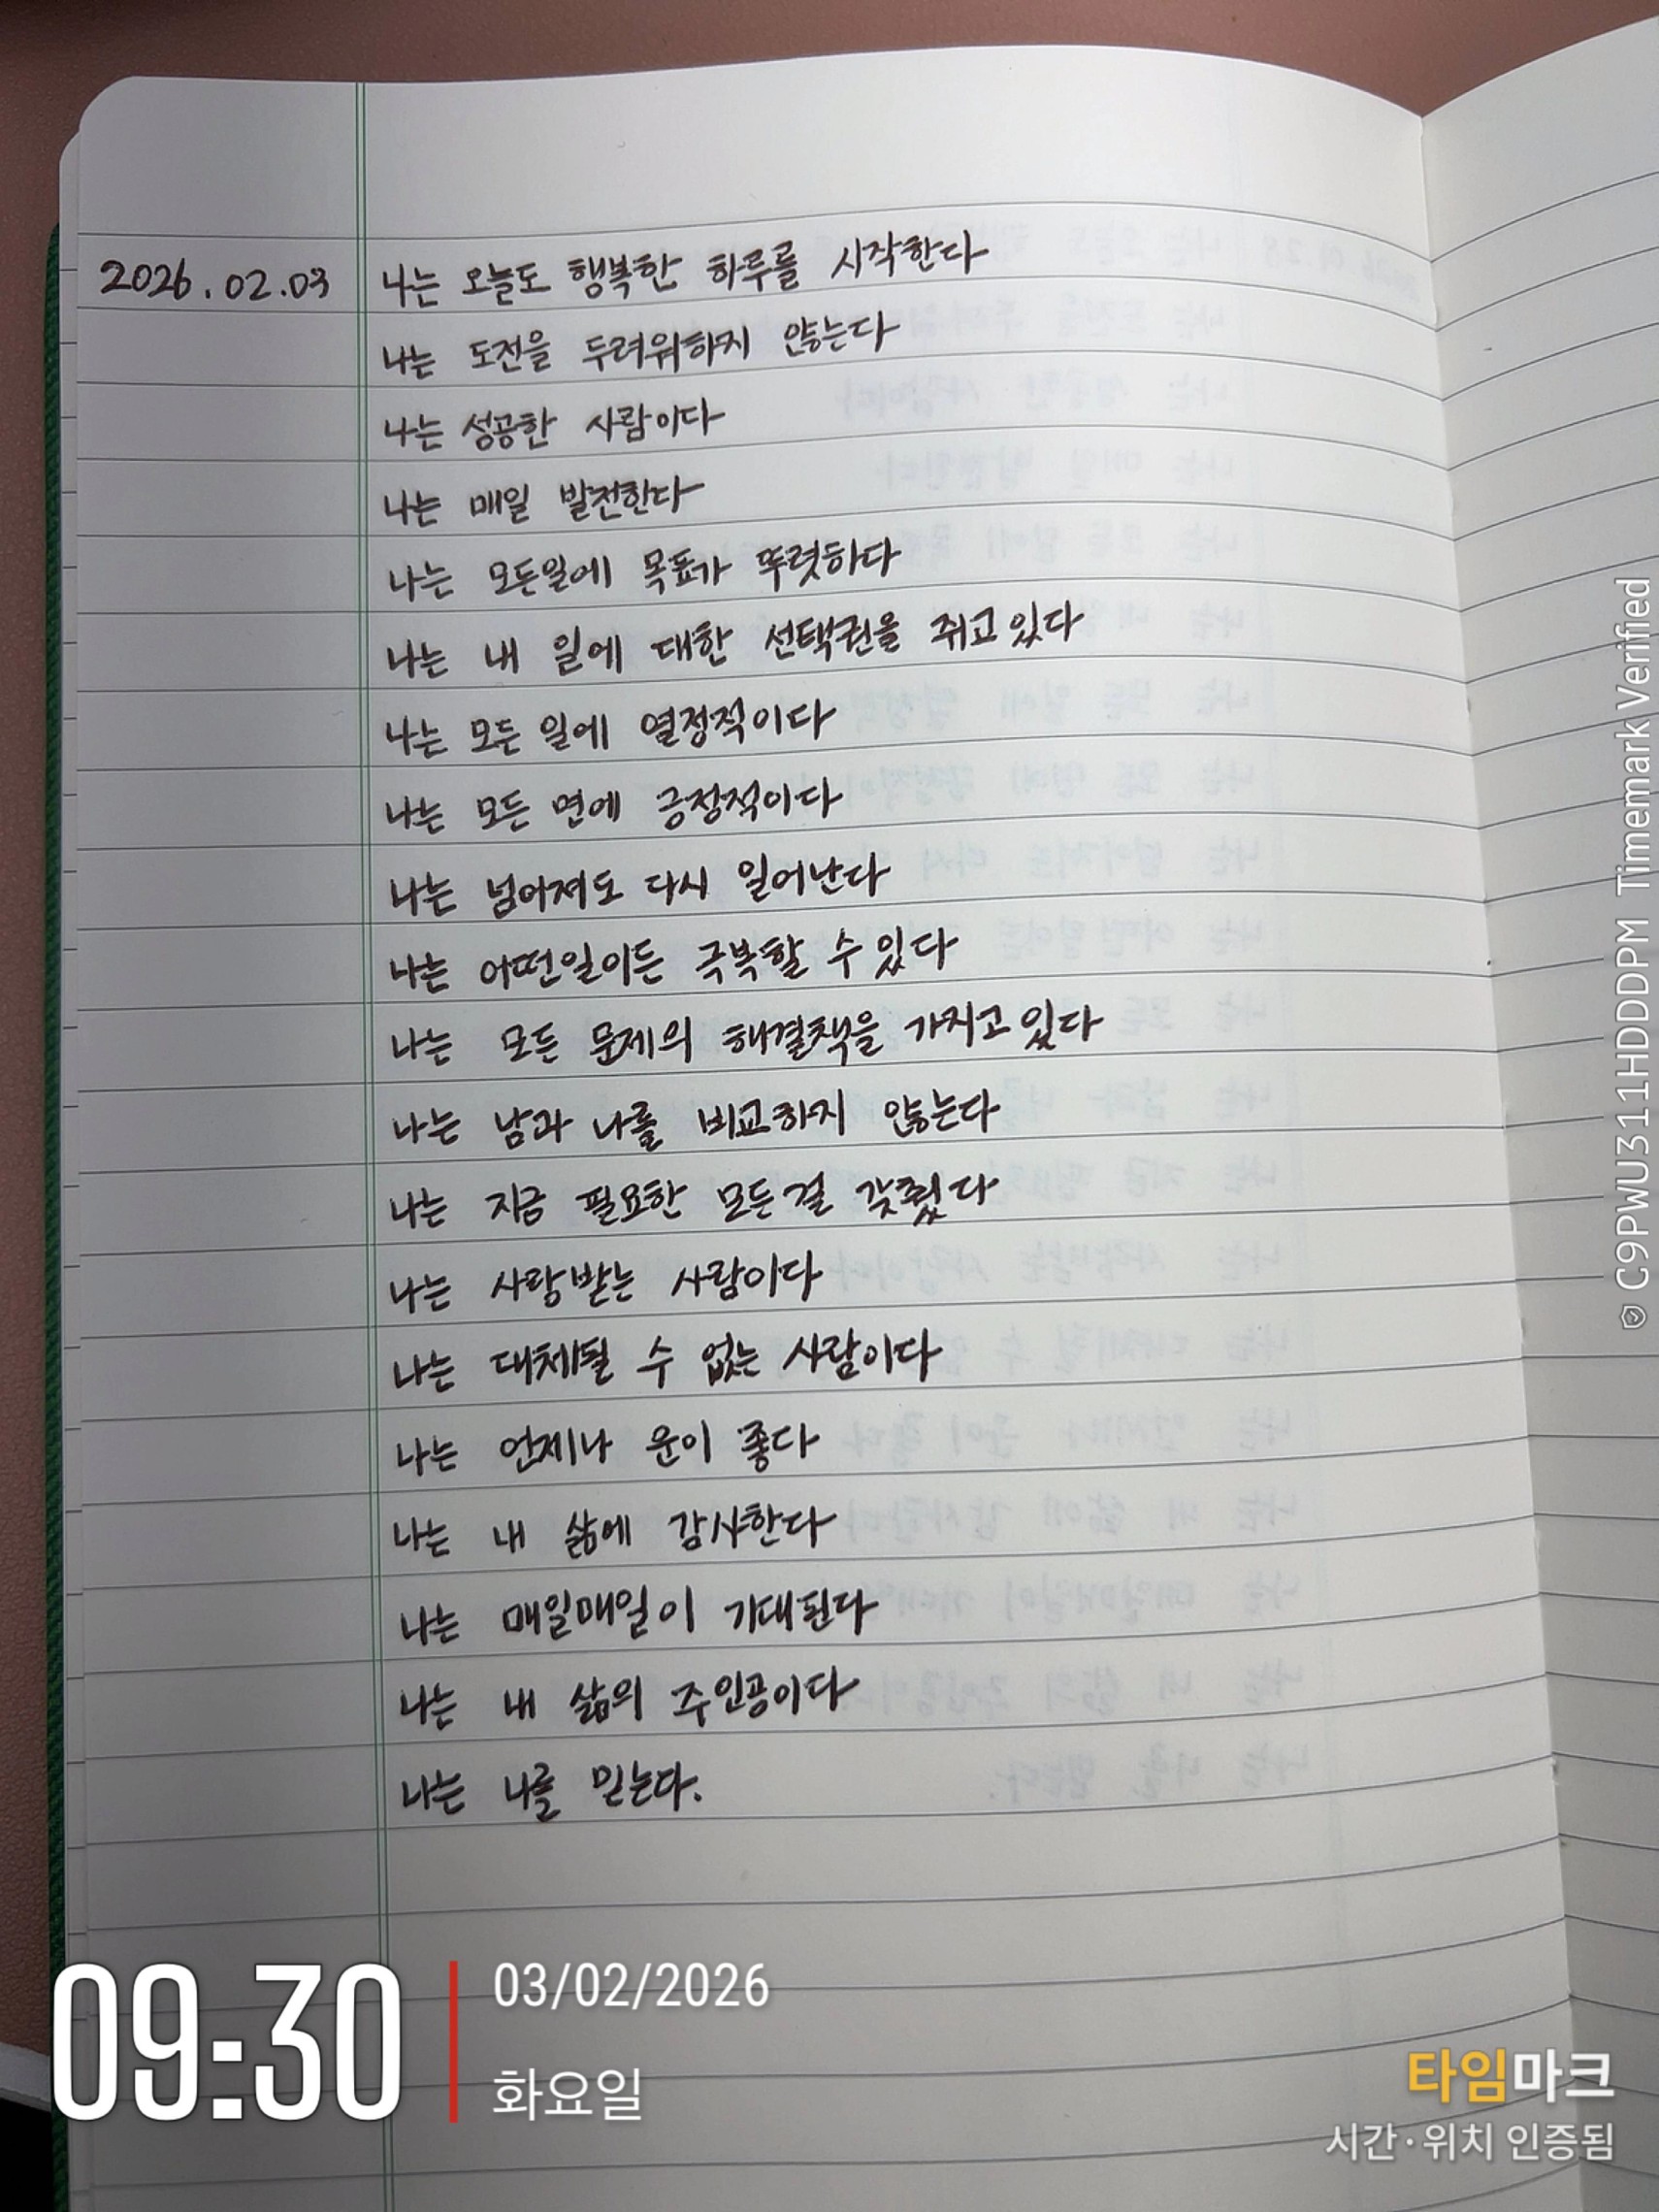 2026.02.03 나는 오늘도 행복한 하루를 시작한다
나는 도전을 두려워하지 않는다
나는 성공한 사람이다
나는 매일 발전한다
나는 모든일에 목표가 뚜렷하다
나는 내 일에 대한 선택권을 쥐고 있다
나는 모든 일에 열정적이다
나는 모든 면에 긍정적이다
나는 넘어져도 다시 일어난다
나는 어떤일이든 극복할 수 있다
나는 모든 문제의 해결책을 가지고 있다
나는 남과 나를 비교하지 않는다
나는 지금 필요한 모든 걸 갖췄다
나는 사랑받는 사람이다
나는 대체될 수 없는 사람이다
나는 언제나 운이 좋다
나는 내 삶에 감사한다
나는 매일매일이 기대된다
나는 내 삶의 주인공이다
나는 나를 믿는다.
09:30
03/02/2026
화요일
타임마크
시간·위치 인증됨
C9PWU311HDDDPM Timemark Verified